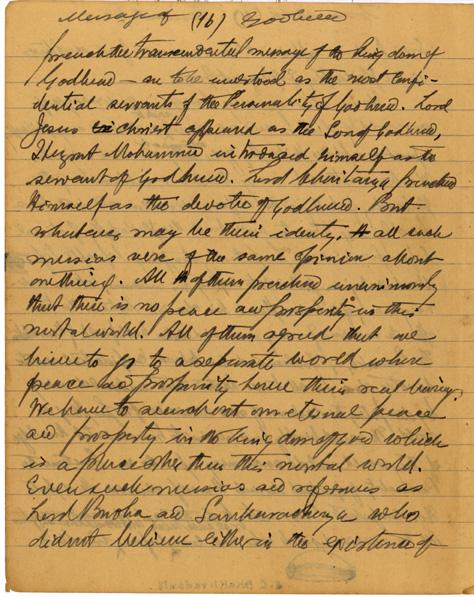 Message of (16) Godhead
preach the transcendental message of the kingdom of
Godhead — are to be understood as the most confi-
dential servants of the Personality of Godhead. Lord
Jesus Christ appeared as the Son of Godhead,
Hazrat Mohammed introduced himself as the
servant of Godhead. Lord Chaitanya preached
Himself as the devotee of Godhead. But
whatever may be their identity, all such
messias were of the same opinion about
one thing. All of them preached unanimously
that there is no peace and prosperity in this
mortal world. All of them agreed that we
have to go to a separate world where
peace and prosperity have their real being.
We have to search out our eternal peace
and prosperity in the kingdom of God which
is a place other than this mortal world.
Even such messias and reformers as
Lord Buddha and Sankaracharya who
did not believe either in the existence of